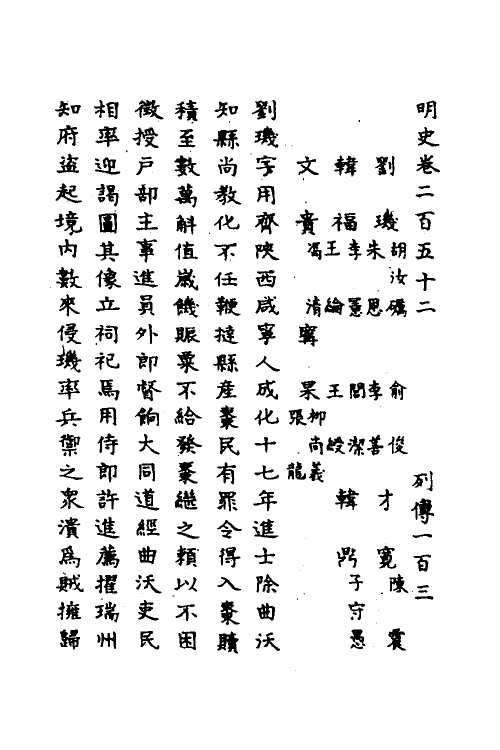 明史卷二百五十二 列傳一百三
劉璣 胡汝礪 朱恩 俞俊 李善 才寬 陳震
韓福 李憲 王綸 閻潔 王綬 韓鼎 子守愚
文貴 馮清 寧杲 柳尚義 張龍
劉璣字用齊陝西咸寧人成化十七年進士除曲沃
知縣尚教化不任鞭撻縣產棗民有罪令得入棗贖
積至數萬斛值歲饑賑粟不給發棗繼之賴以不困
徵授戶部主事進員外郎督餉大同道經曲沃吏民
相率迎謁圖其像立祠祀焉用侍郎許進薦擢瑞州
知府盜起境內數來侵璣率兵禦之衆潰爲賊擁歸